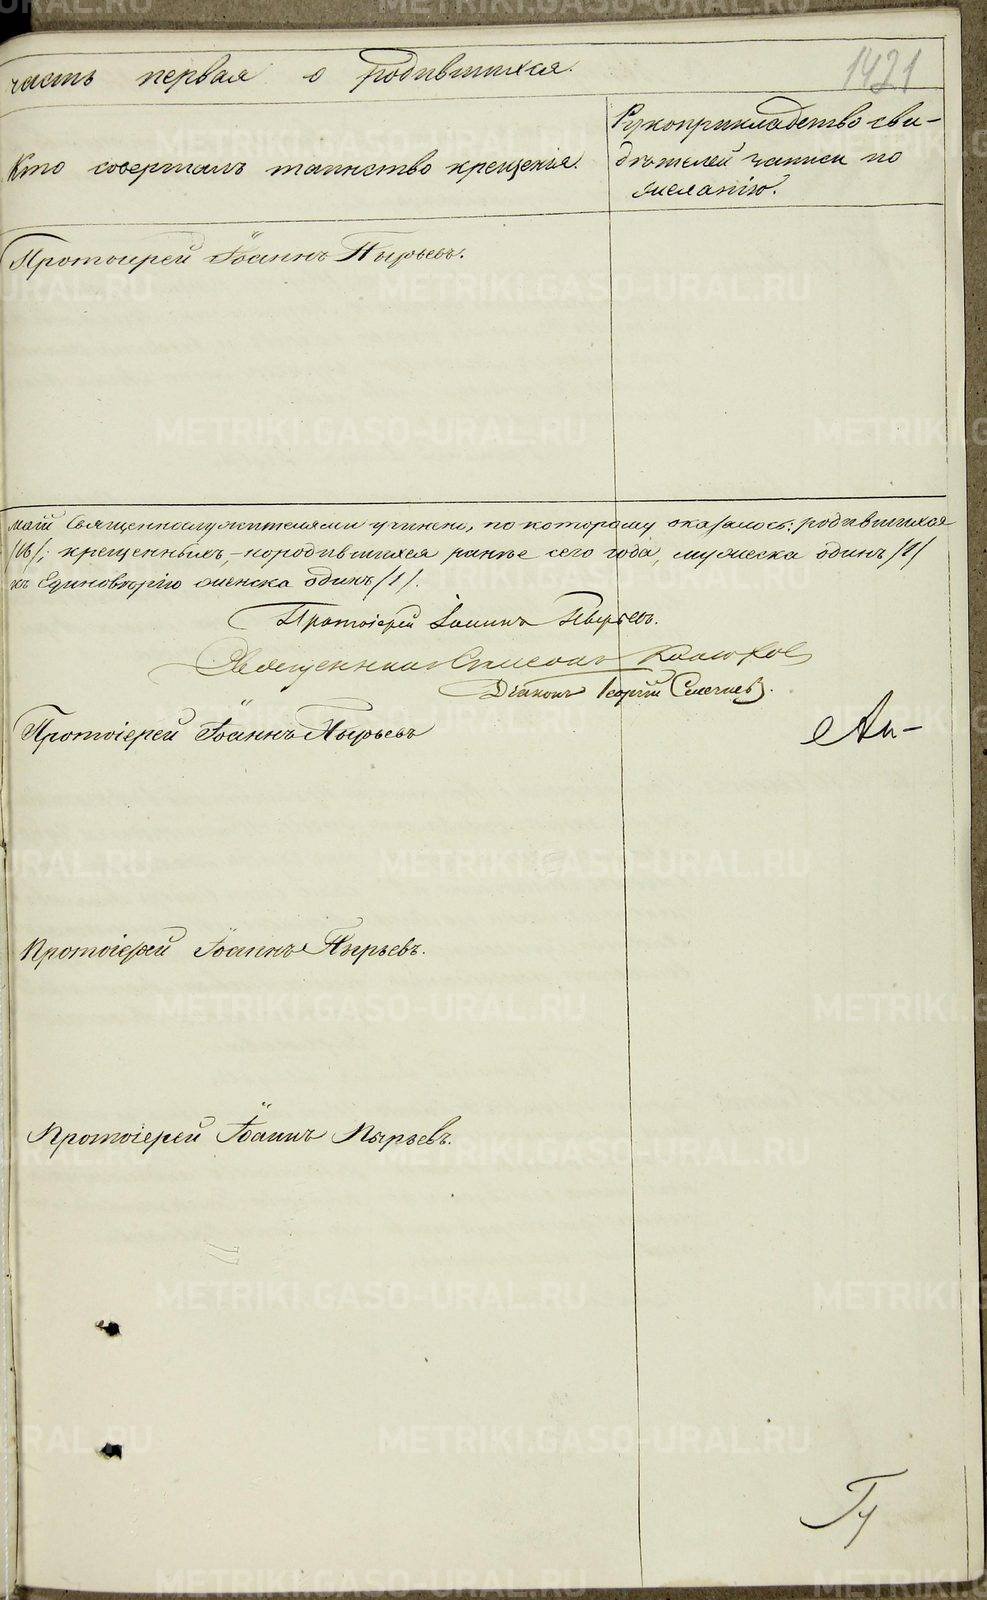 часть первая о родившихся.
1421
Кто совершалъ таинство крещенія.
Рукоприкладство сви-
дѣтелей записи по
желанію.
Протоіерей Іоаннъ Пырьевъ.
священнослужителями учинено, по которому оказалось: родившихся
крещенныхъ, но родившихся ранѣе сего года, мужеска одинъ /1/
къ Единовѣрію женска одинъ /1/.
Протоіерей Іоаннъ Пырьевъ.
Священникъ
Діаконъ Георгій
Протоіерей Іоаннъ Пырьевъ
Ан-
Протоіерей Іоаннъ Пырьевъ.
Протоіерей Іоаннъ Пырьевъ.
Гу
METRIKI.GASO-URAL.RU